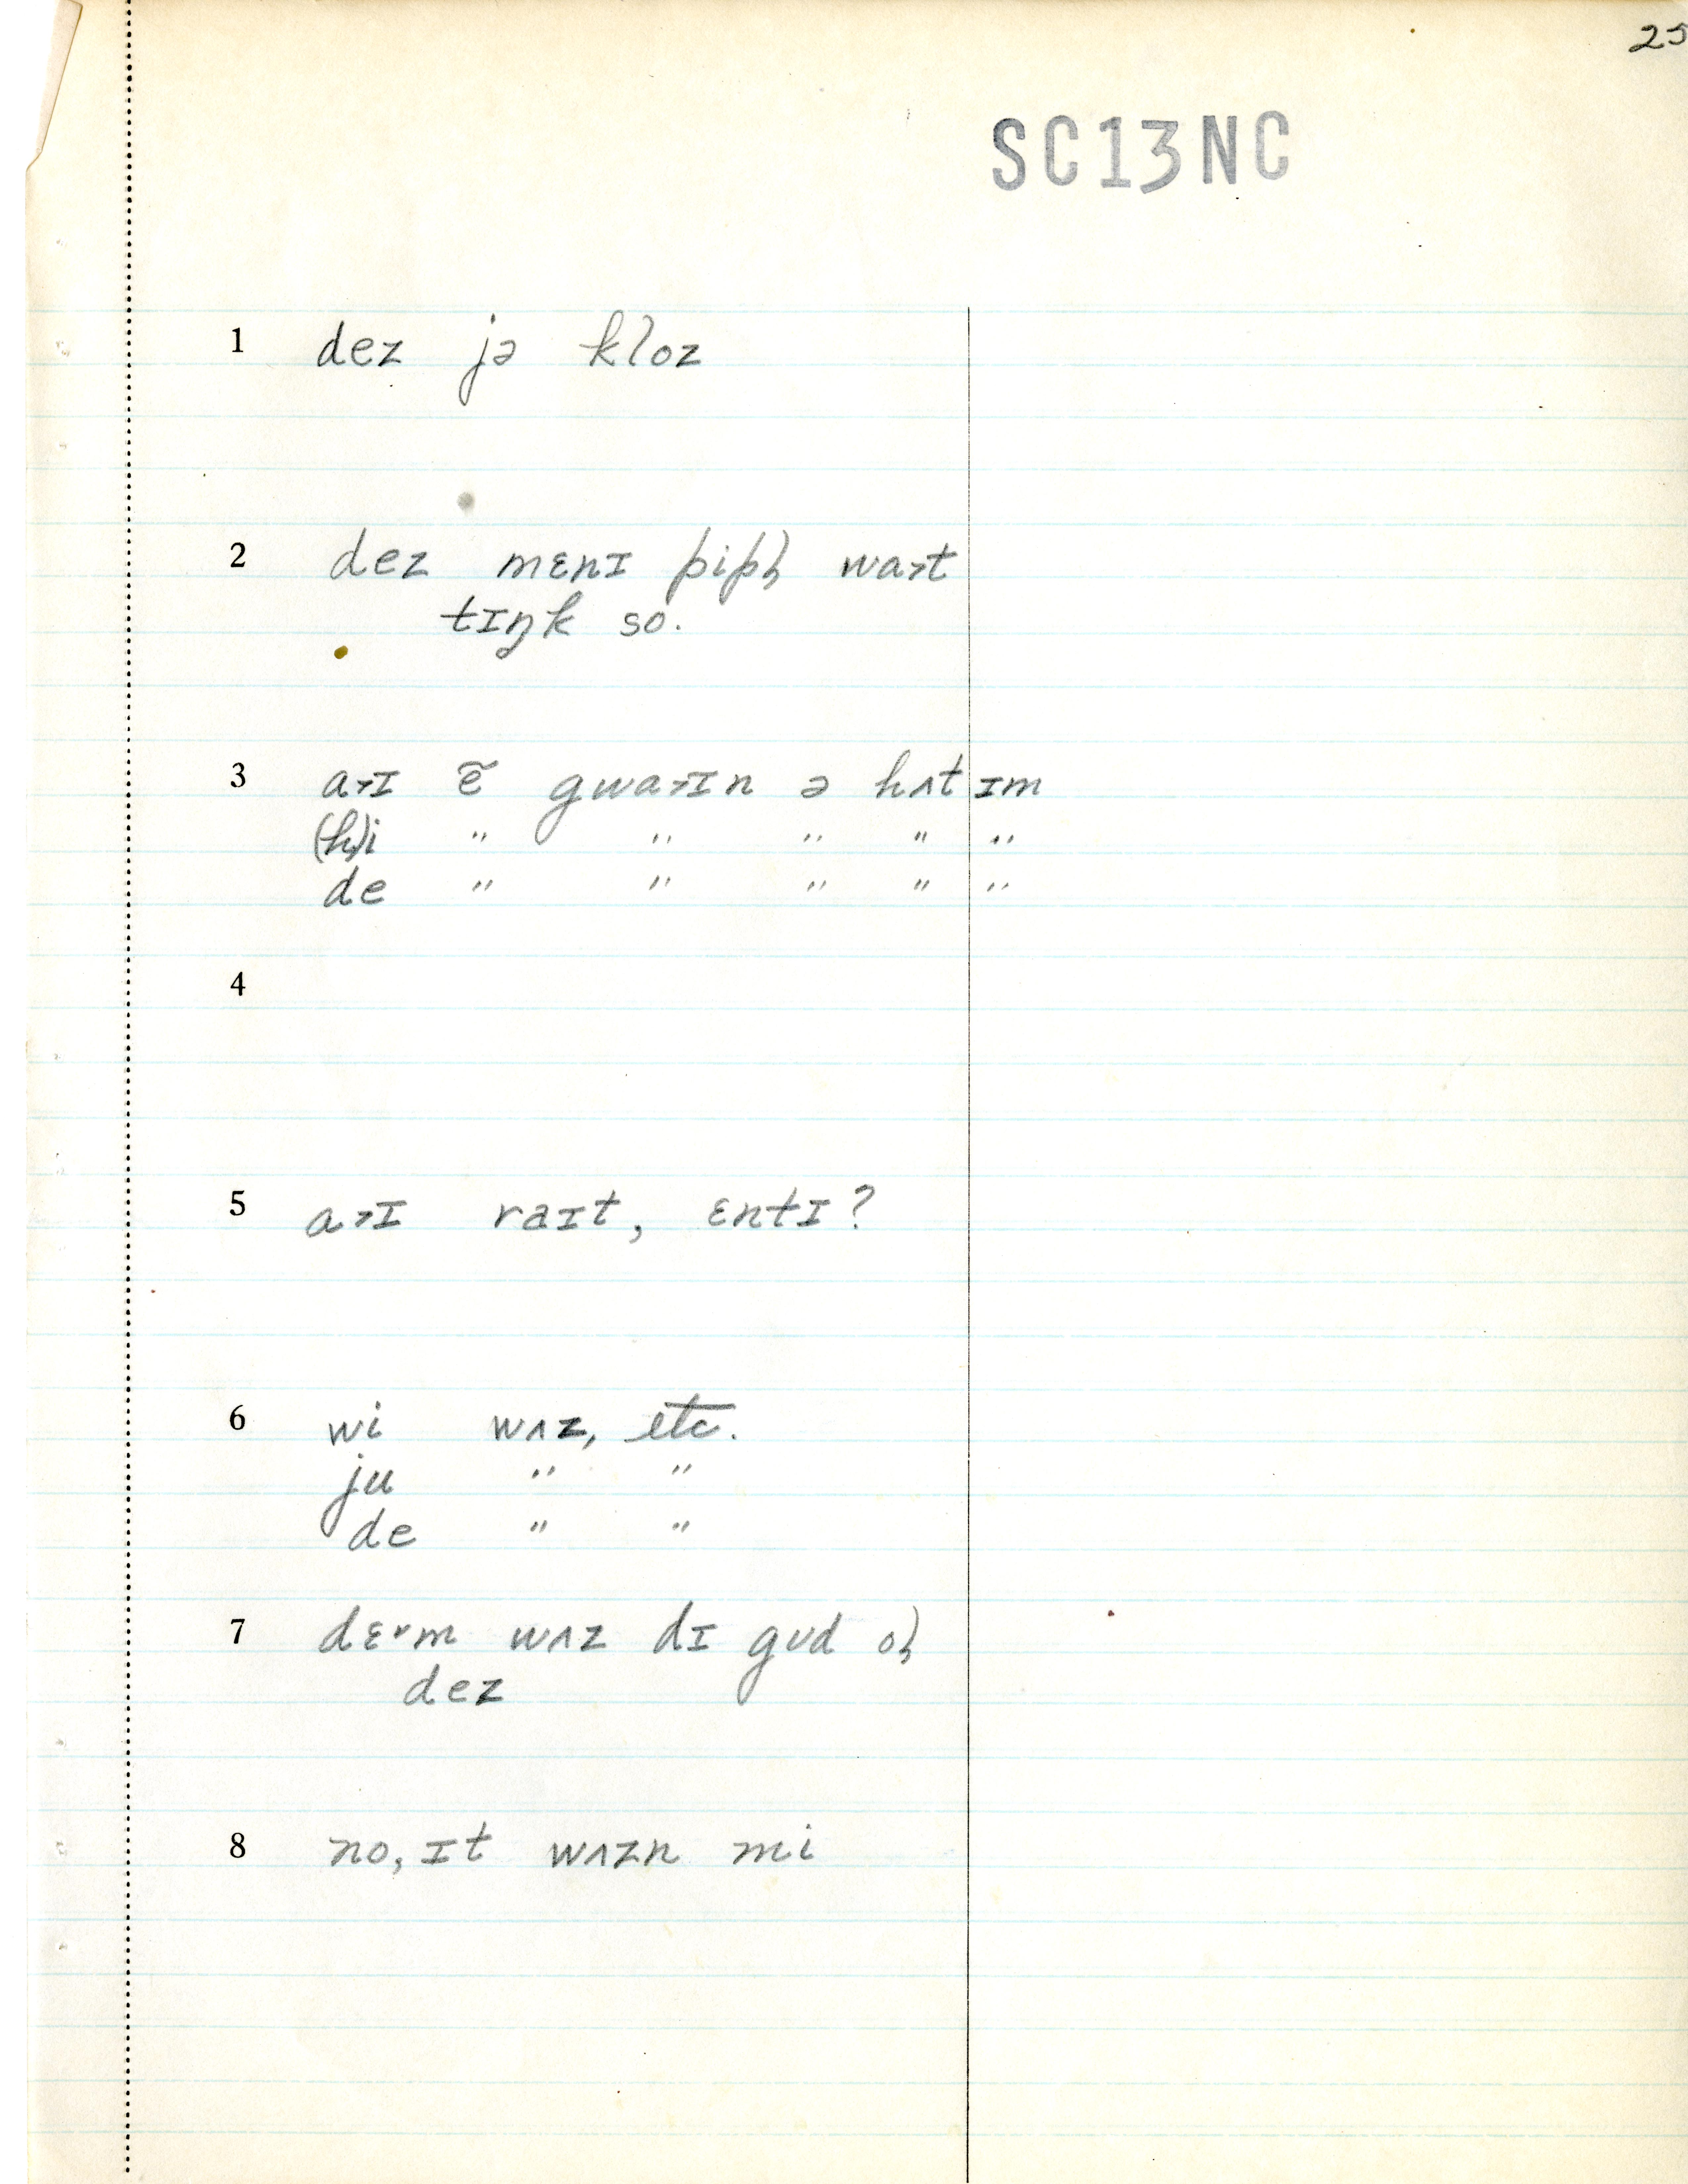 25
SC13NC
1 dez jə kloz
2 dez mɛnɪ pipl̩ wa˃t
tɪŋk so.
3 a˃ɪ ẽ gwa˃ɪn ə hʌt ɪm
(h)i " " " " "
de " " " " "
4
5 a˃ɪ raɪt, ɛntɪ?
6 wi wʌz, etc.
ju " "
de " "
7 dɛ˞m wʌz dɪ gʊd ol̩
dez
8 no, ɪt wʌzn mi